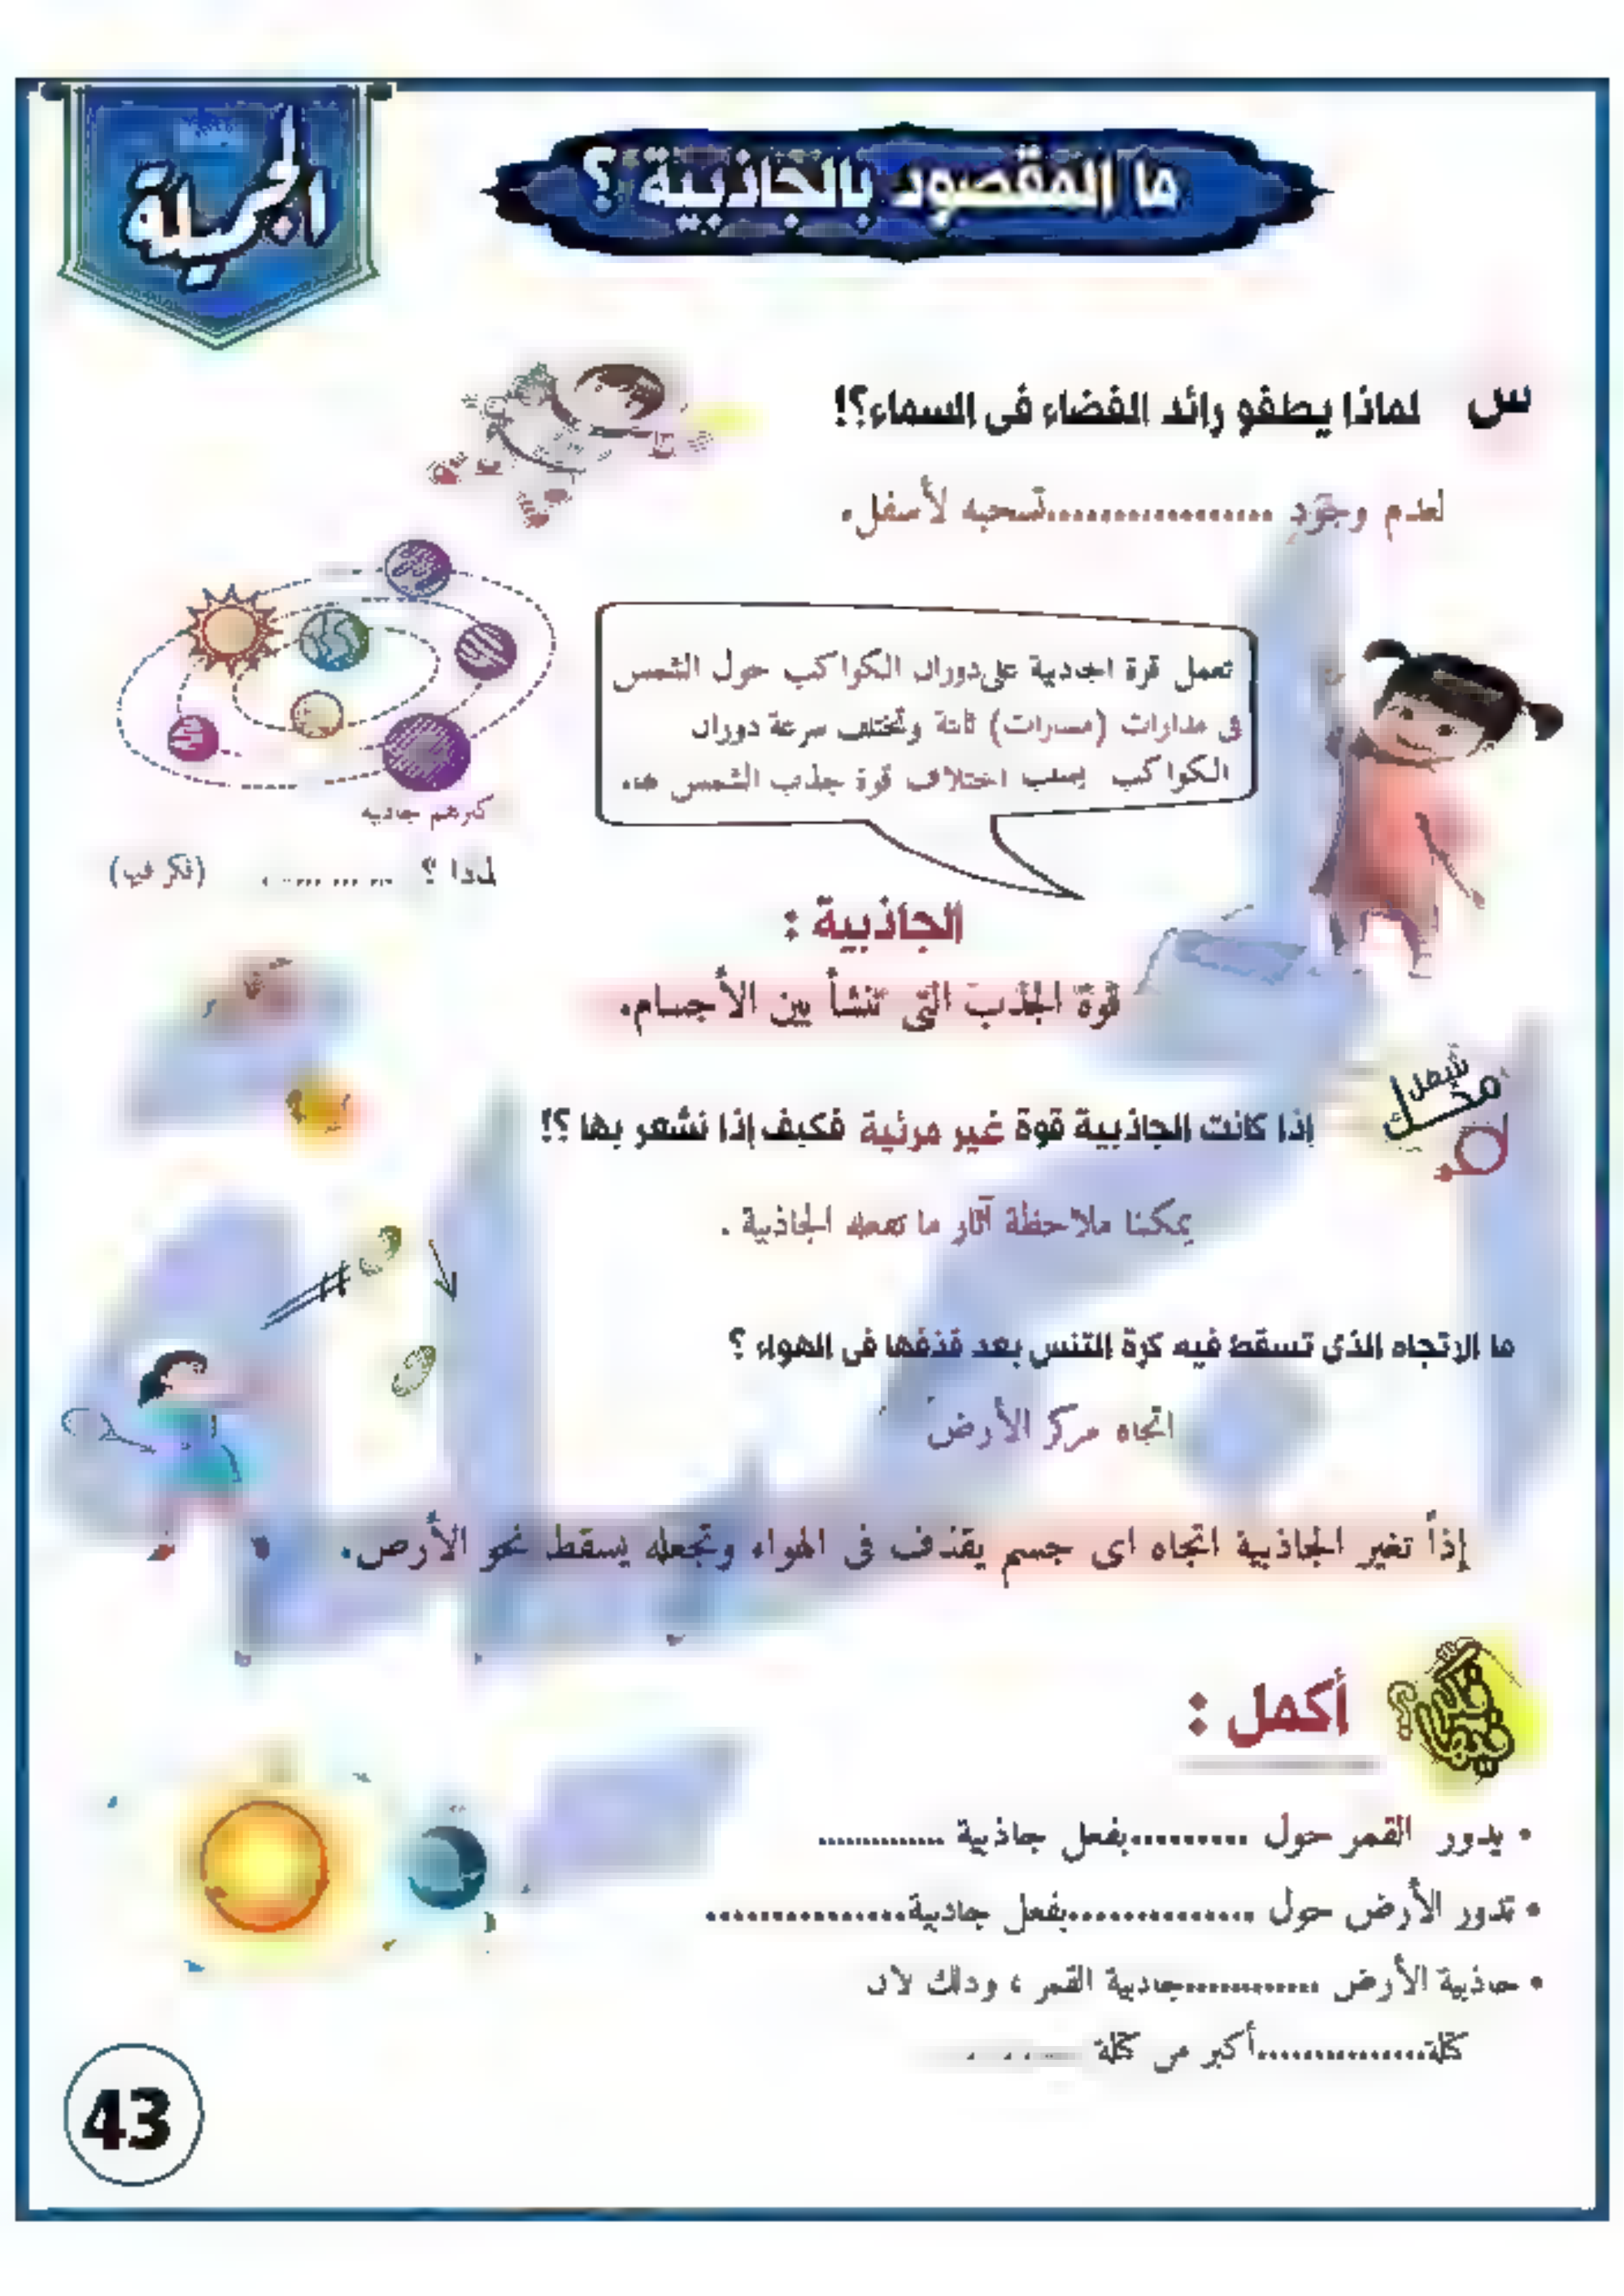 ما المقصود بالجاذبية ؟
الجميلة
س لماذا يطفو رائد الفضاء فى السماء؟!
لعدم وجود ..................تسحبه لأسفل.
تعمل قوة الجاذبية على دوران الكواكب حول الشمس
فى مدارات (مسارات) ثابتة وتختلف سرعة دوران
الكواكب بسبب اختلاف قوة جذب الشمس لها.
جاذبية
لماذا ؟ ...........
الجاذبية :
قوة الجذب التى تنشأ بين الأجسام.
شغل مخك
إذا كانت الجاذبية قوة غير مرئية فكيف إذا نشعر بها ؟!
يمكننا ملاحظة آثار ما تفعله الجاذبية .
ما الاتجاه الذى تسقط فيه كرة التنس بعد قذفها فى الهواء ؟
اتجاه مركز الأرض
إذاً تغير الجاذبية اتجاه اى جسم يقذف فى الهواء وتجعله يسقط نحو الأرض.
أكمل :
• يدور القمر حول .........بفعل جاذبية .............
• تدور الأرض حول ..............بفعل جاذبية...............
• جاذبية الأرض ............جاذبية القمر ، وذلك لأن
كتلة...............أكبر من كتلة ........
43